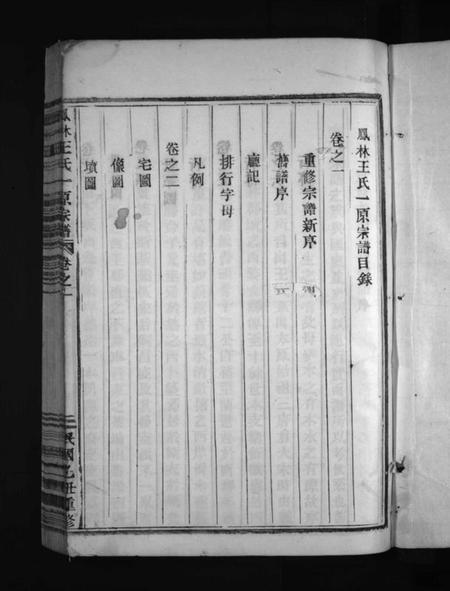 鳳林王氏一原宗譜目錄
卷之一
重修宗譜新序
舊譜序
廳記
排行字母
凡例
卷之二
宅圖
像圖
墳圖
鳳林王氏一原宗譜 卷之一
民國乙丑重修